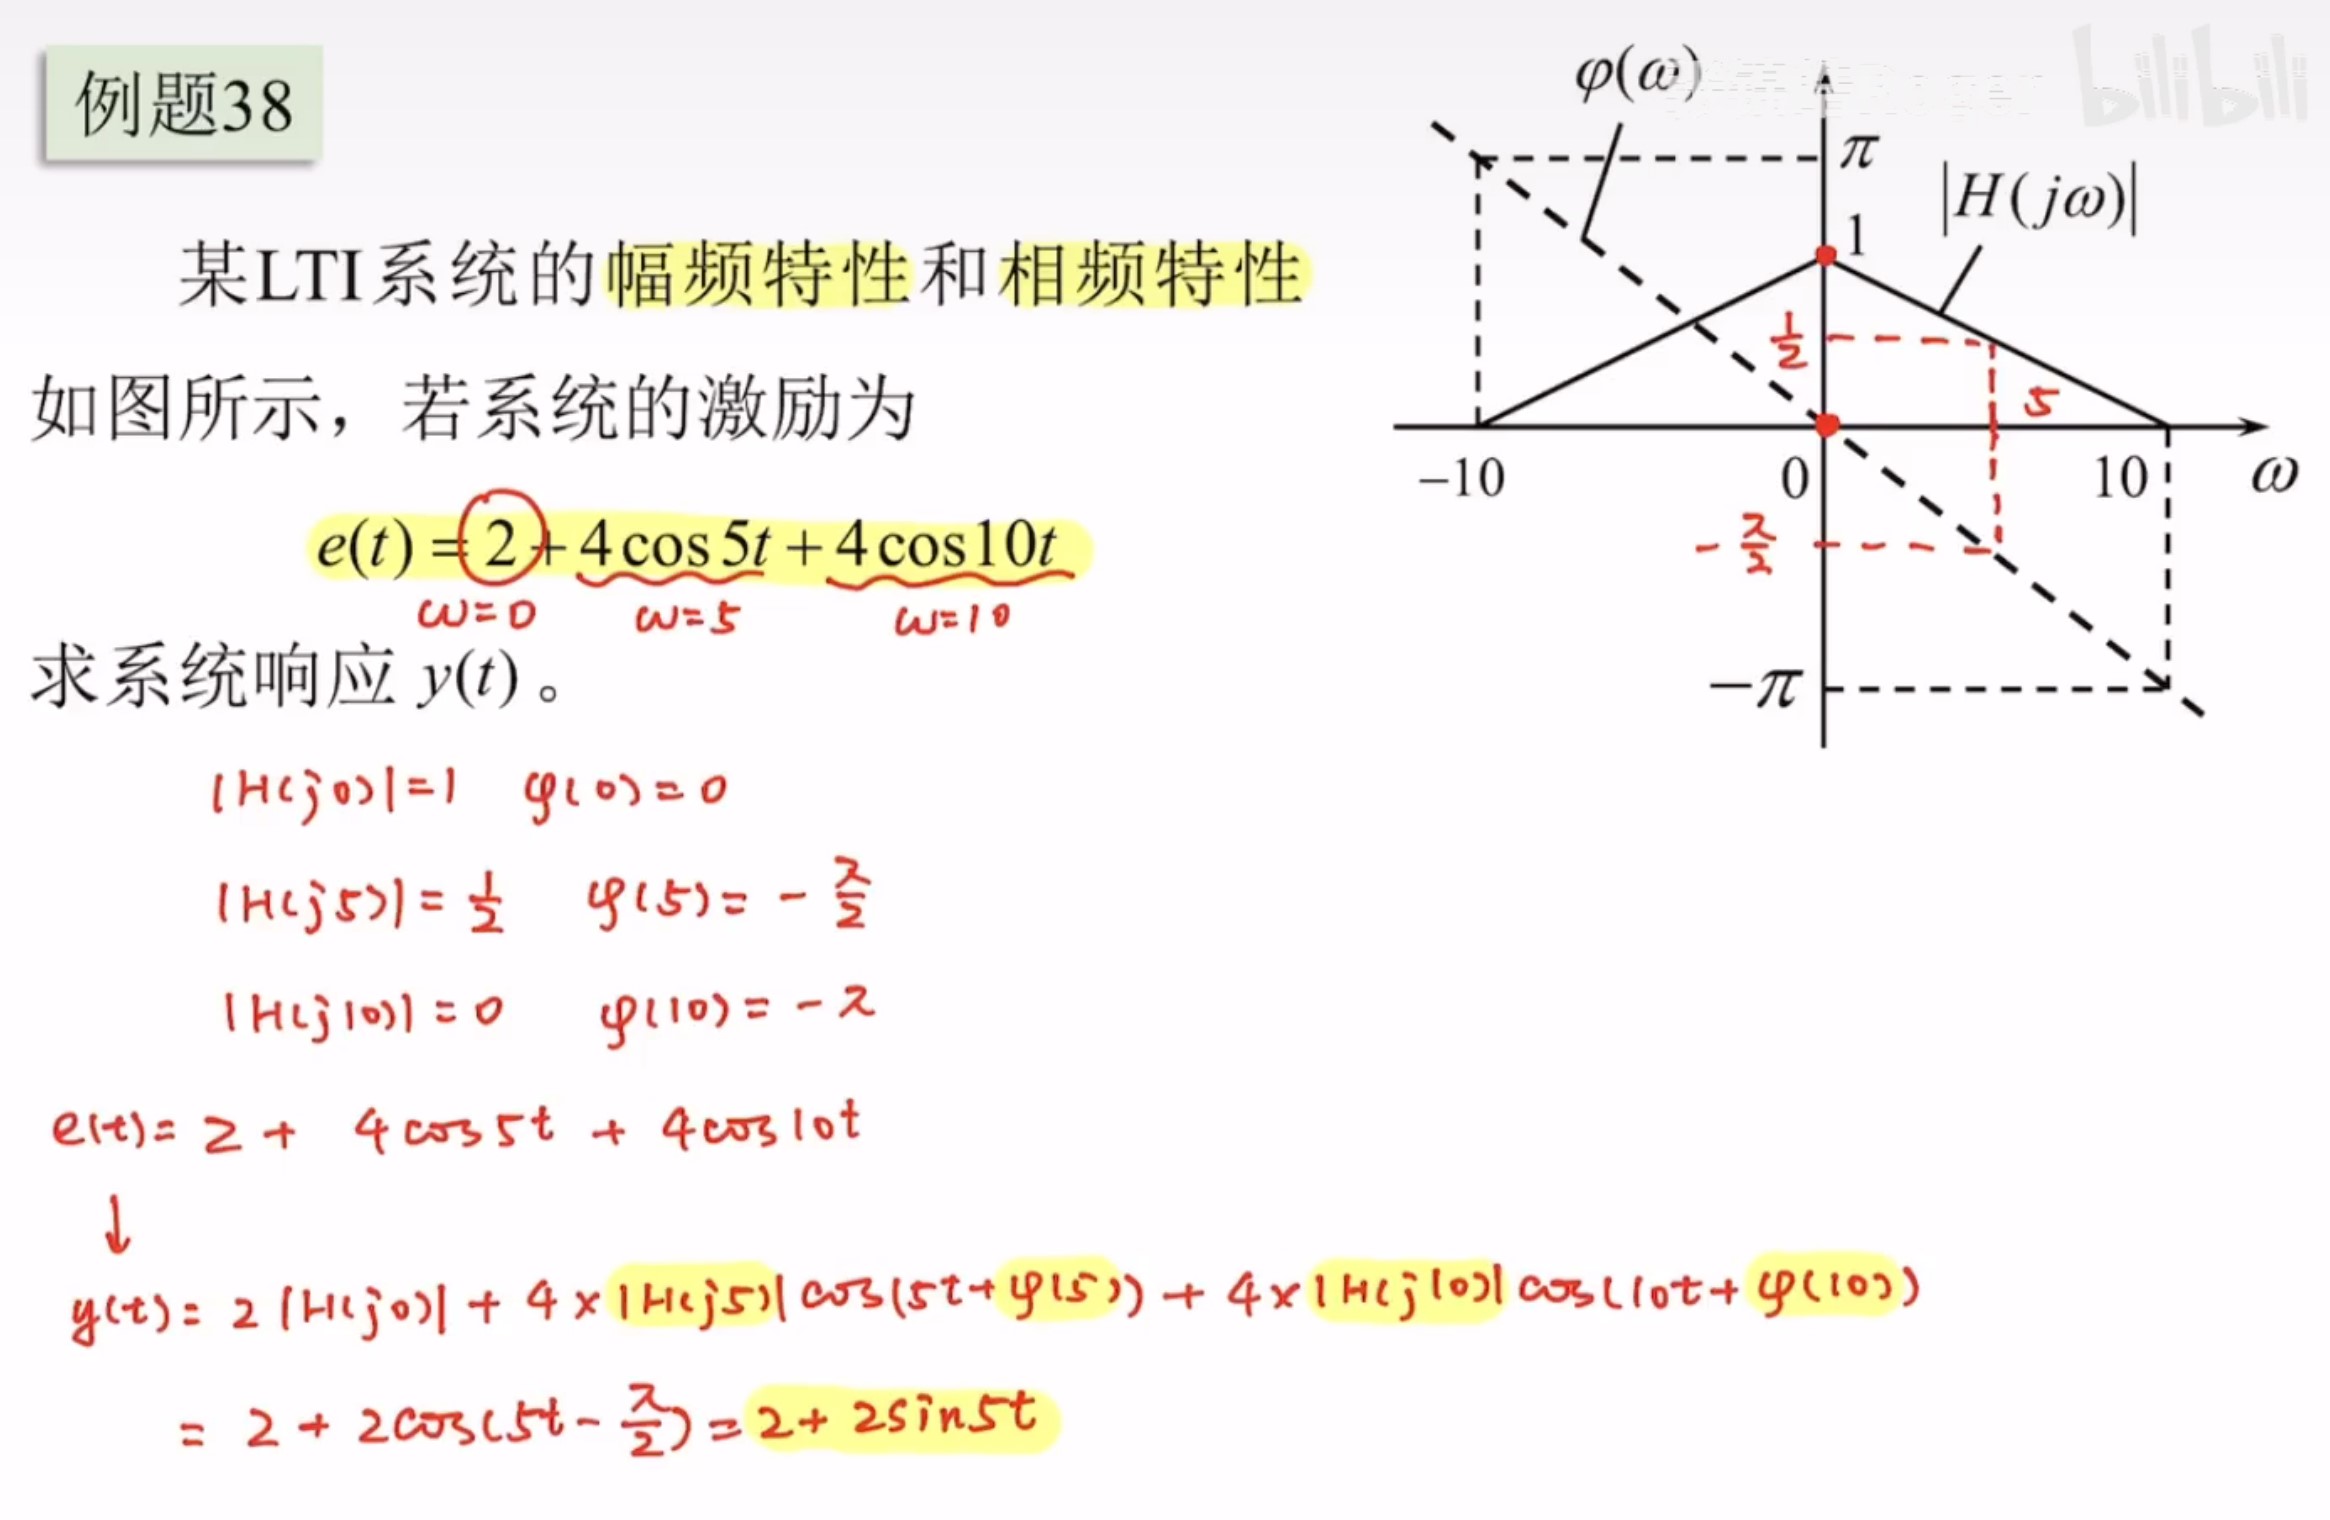 例题38
某LTI系统的幅频特性和相频特性
如图所示，若系统的激励为
e(t) = 2 + 4cos5t + 4cos10t
ω=0 ω=5 ω=10
求系统响应 y(t) 。
φ(ω)
bilibili
π
|H(jω)|
1
1/2
5
-10 0 10 ω
-π/2
-π
|H(j0)|=1 φ(0)=0
|H(j5)|=1/2 φ(5)=-π/2
|H(j10)|=0 φ(10)=-π
e(t)=2+ 4cos5t + 4cos10t
↓
y(t)=2|H(j0)|+4×|H(j5)|cos(5t+φ(5))+4×|H(j10)|cos(10t+φ(10))
=2+2cos(5t-π/2)=2+2sin5t